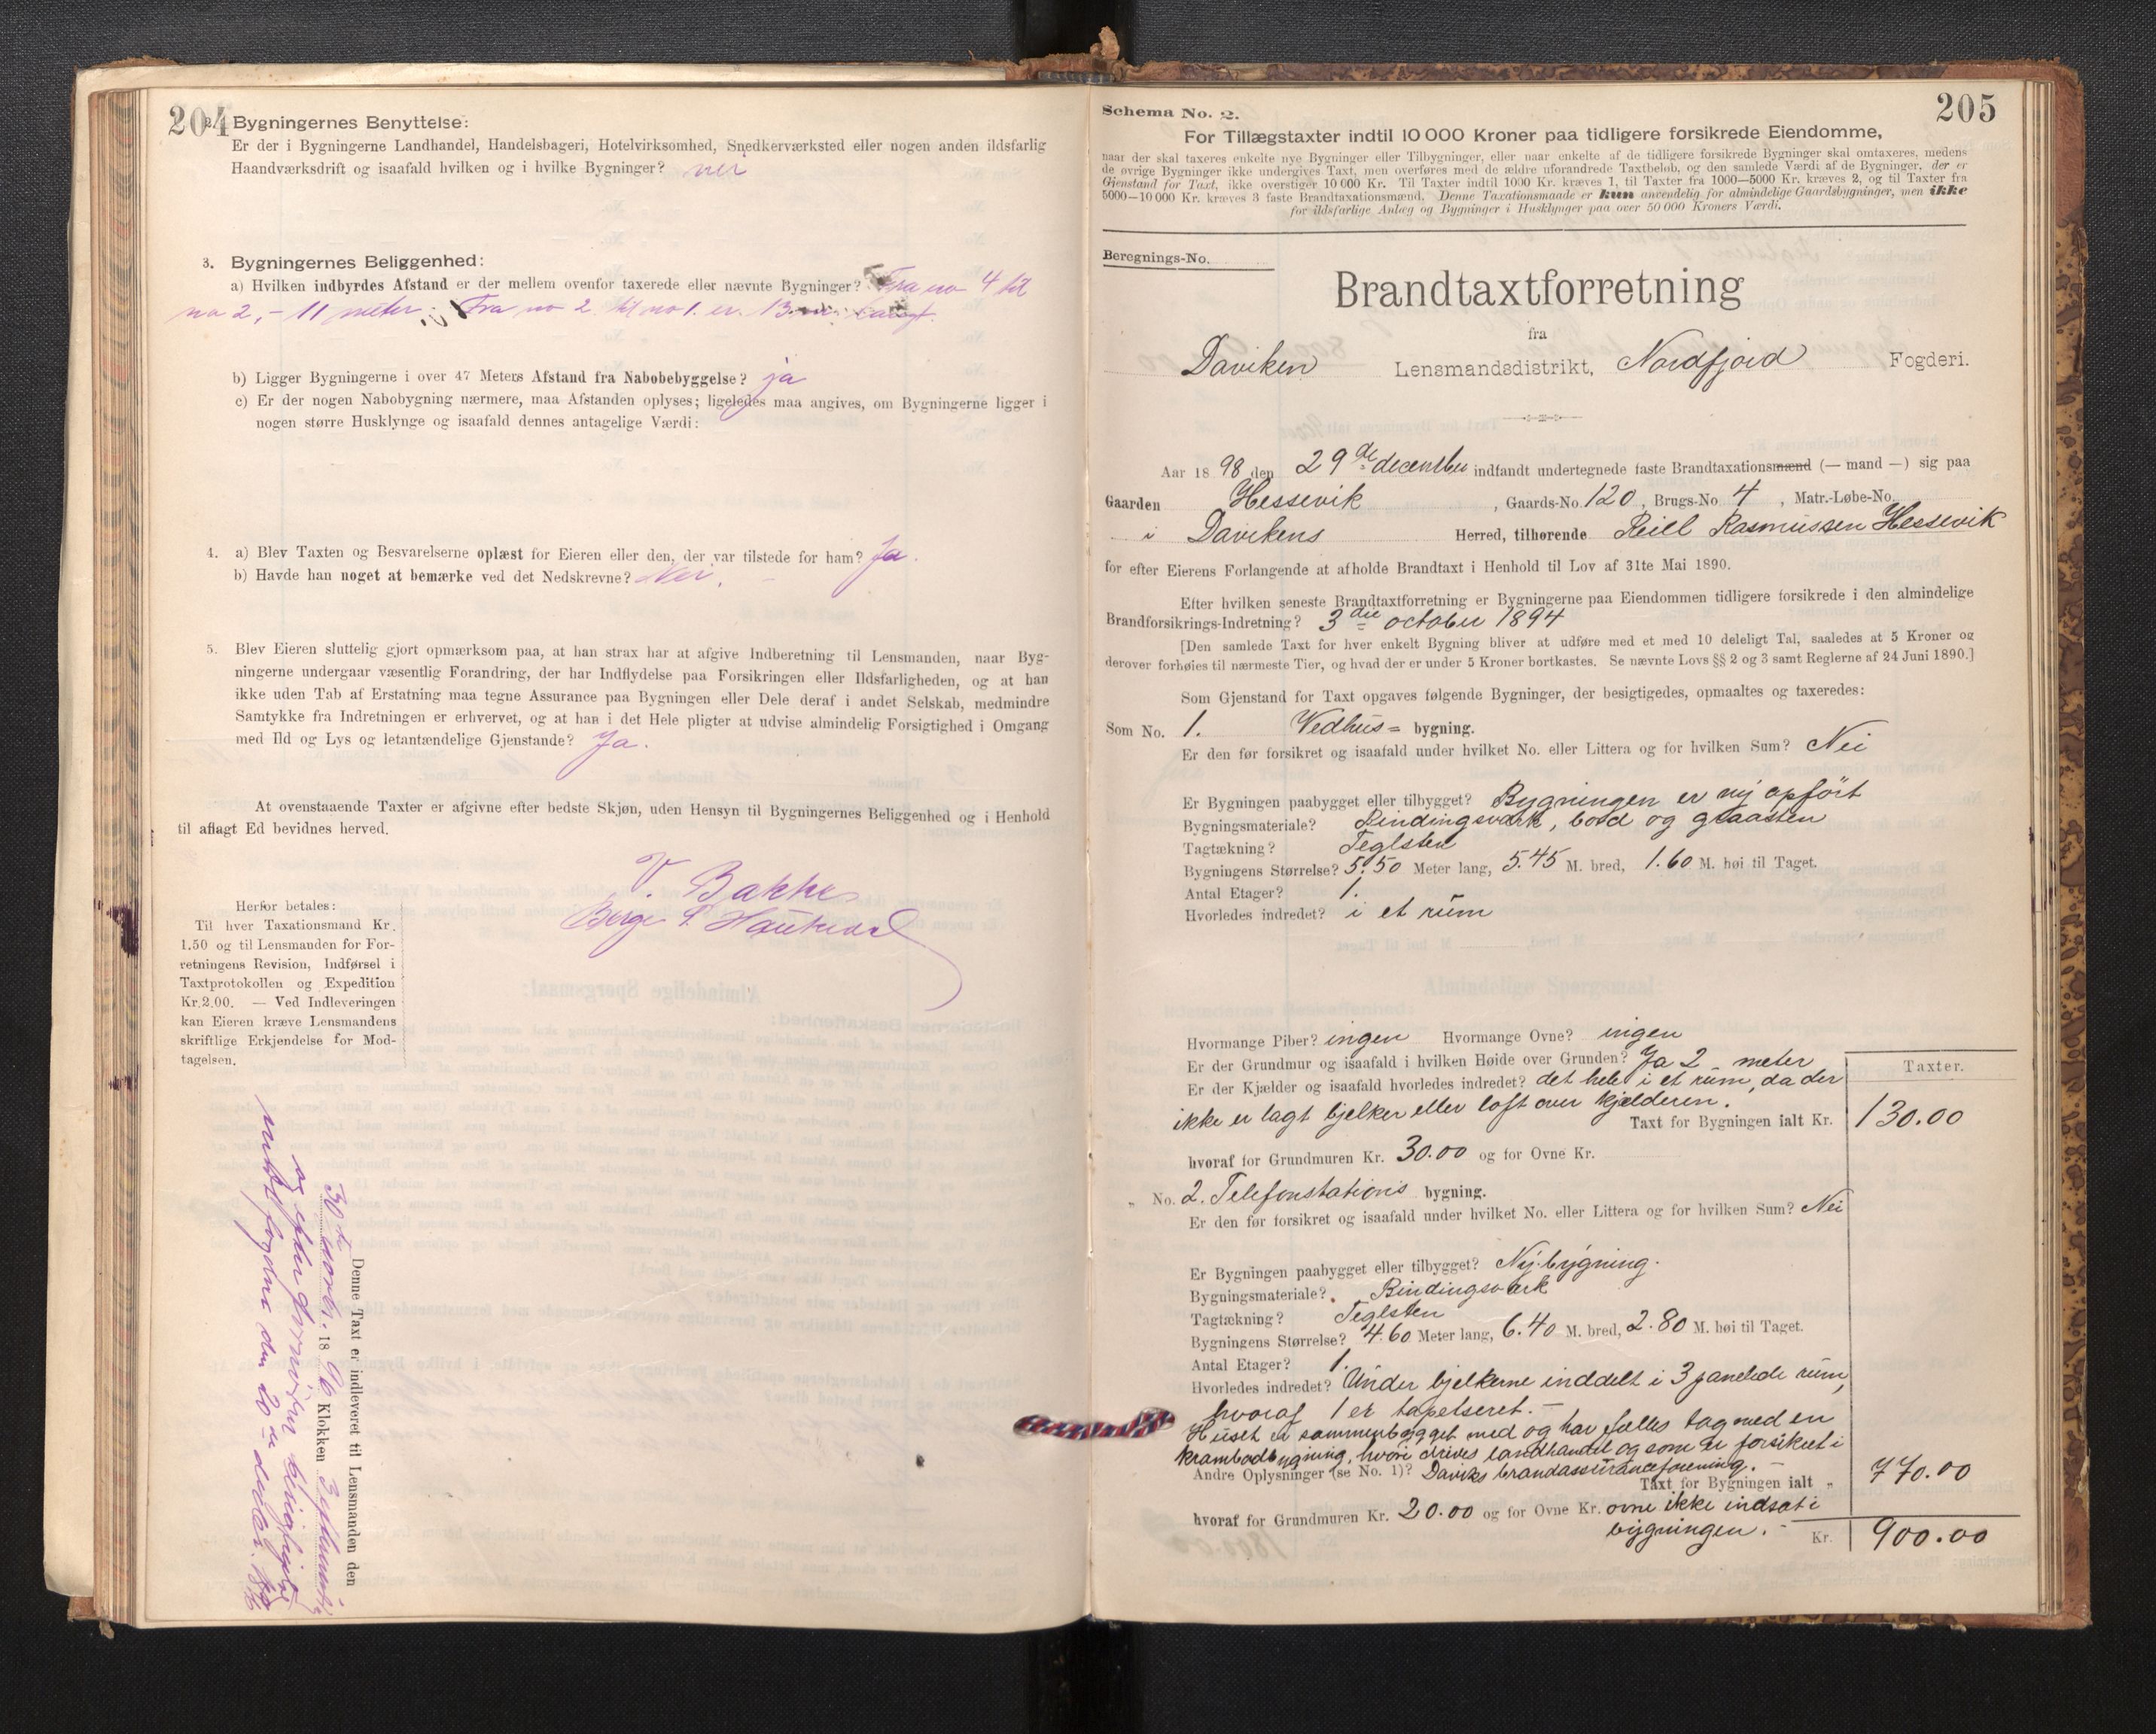 204
2. Bygningernes Benyttelse:
Er der i Bygningerne Landhandel, Handelsbageri, Hotelvirksomhed, Snedkerværksted eller nogen anden ildsfarlig
Haandværksdrift og isaafald hvilken og i hvilke Bygninger? nei
3. Bygningernes Beliggenhed:
a) Hvilken indbyrdes Afstand er der mellem ovenfor taxerede eller nævnte Bygninger? Fra no 4 til
no 2, - 11 meter. Fra no 2 til no 1. er 13
b) Ligger Bygningerne i over 47 Meters Afstand fra Nabobebyggelse? ja
c) Er der nogen Nabobygning nærmere, maa Afstanden oplyses; ligeledes maa angives, om Bygningerne ligger i
nogen større Husklynge og isaafald dennes antagelige Værdi:
4. a) Blev Taxten og Besvarelserne oplæst for Eieren eller den, der var tilstede for ham? Ja.
b) Havde han noget at bemærke ved det Nedskrevne? Nei. -
5. Blev Eieren sluttelig gjort opmærksom paa, at han strax har at afgive Indberetning til Lensmanden, naar Byg-
ningerne undergaar væsentlig Forandring, der har Indflydelse paa Forsikringen eller Ildsfarligheden, og at han
ikke uden Tab af Erstatning maa tegne Assurance paa Bygningen eller Dele deraf i andet Selskab, medmindre
Samtykke fra Indretningen er erhvervet, og at han i det Hele pligter at udvise almindelig Forsigtighed i Omgang
med Ild og Lys og letantændelige Gjenstande? Ja.
At ovenstaaende Taxter er afgivne efter bedste Skjøn, uden Hensyn til Bygningernes Beliggenhed og i Henhold
til aflagt Ed bevidnes herved.
V. Bakke
Berge P.
Herfor betales:
Til hver Taxationsmand Kr.
1.50 og til Lensmanden for For-
retningens Revision, Indførsel i
Taxtprotokollen og Expedition
Kr. 2.00. — Ved Indleveringen
kan Eieren kræve Lensmandens
skriftlige Erkjendelse for Mod-
tagelsen.
Denne Taxt er indleveret til Lensmanden den
30te novbr. 1896 Klokken 3 eftermidd.
og efter
fogden den 20de decbr. 1896
205
Schema No. 2.
For Tillægstaxter indtil 10 000 Kroner paa tidligere forsikrede Eiendomme,
naar der skal taxeres enkelte nye Bygninger eller Tilbygninger, eller naar enkelte af de tidligere forsikrede Bygninger skal omtaxeres, medens
de øvrige Bygninger ikke undergives Taxt, men overføres med de ældre uforandrede Taxtbeløb, og den samlede Værdi af de Bygninger, der er
Gjenstand for Taxt, ikke overstiger 10 000 Kr. Til Taxter indtil 1000 Kr. kræves 1, til Taxter fra 1000—5000 Kr. kræves 2, og til Taxter fra
5000—10 000 Kr. kræves 3 faste Brandtaxationsmænd. Denne Taxationsmaade er kun anvendelig for almindelige Gaardsbygninger, men ikke
for ildsfarlige Anlæg og Bygninger i Husklynger paa over 50 000 Kroners Værdi.
Beregnings-No.
Brandtaxtforretning
fra
Daviken Lensmandsdistrikt, Nordfjord Fogderi.
Aar 1898 den 29de december indfandt undertegnede faste Brandtaxationsmænd (— mand —) sig paa
Gaarden Hessevik, Gaards-No. 120, Brugs-No. 4, Matr.-Løbe-No.
i Davikens Herred, tilhørende Reill Rasmussen Hessevik
for efter Eierens Forlangende at afholde Brandtaxt i Henhold til Lov af 31te Mai 1890.
Efter hvilken seneste Brandtaxtforretning er Bygningerne paa Eiendommen tidligere forsikrede i den almindelige
Brandforsikrings-Indretning? 3die october 1894
[Den samlede Taxt for hver enkelt Bygning bliver at udføre med et med 10 deleligt Tal, saaledes at 5 Kroner og
derover forhøies til nærmeste Tier, og hvad der er under 5 Kroner bortkastes. Se nævnte Lovs §§ 2 og 3 samt Reglerne af 24 Juni 1890.]
Som Gjenstand for Taxt opgaves følgende Bygninger, der besigtigedes, opmaaltes og taxeredes:
Som No. 1. Vedhus= bygning.
Er den før forsikret og isaafald under hvilket No. eller Littera og for hvilken Sum? Nei
Er Bygningen paabygget eller tilbygget? Bygningen er ny opført
Bygningsmateriale? Bindingsværk, bord og graasten
Tagtækning? Teglsten
Bygningens Størrelse? 5.50 Meter lang, 5.45 M. bred, 1.60 M. høi til Taget.
Antal Etager? 1.
Hvorledes indredet? i et rum
Hvormange Piber? ingen Hvormange Ovne? ingen
Er der Grundmur og isaafald i hvilken Høide over Grunden? Ja 2 meter
Taxter.
Er der Kjælder og isaafald hvorledes indredet? det hele i et rum, da der
ikke er lagt bjelker eller loft over kjælderen.
Taxt for Bygningen ialt Kr. 130.00
hvoraf for Grundmuren Kr. 30.00 og for Ovne Kr.
" No. 2. Telefonstations bygning.
Er den før forsikret og isaafald under hvilket No. eller Littera og for hvilken Sum? Nei
Er Bygningen paabygget eller tilbygget? Ny bygning.
Bygningsmateriale? Bindingsværk
Tagtækning? Teglsten
Bygningens Størrelse? 4.60 Meter lang, 6.40 M. bred, 2.80 M. høi til Taget.
Antal Etager? 1.
Hvorledes indredet? Under bjelkerne inddelt i 3 panelede rum,
hvoraf 1 er tapetseret. -
Huset er sammenbygget med og har fælles tag med en
krambodbygning, hvori drives landhandel og som er forsikret i
Andre Oplysninger (se No. 1)? Daviks brandassuranceforening. -
Taxt for Bygningen ialt " 770.00
hvoraf for Grundmuren Kr. 20.00 og for Ovne Kr. ovne ikke indsat i
bygningen. -
Kr. 900.00